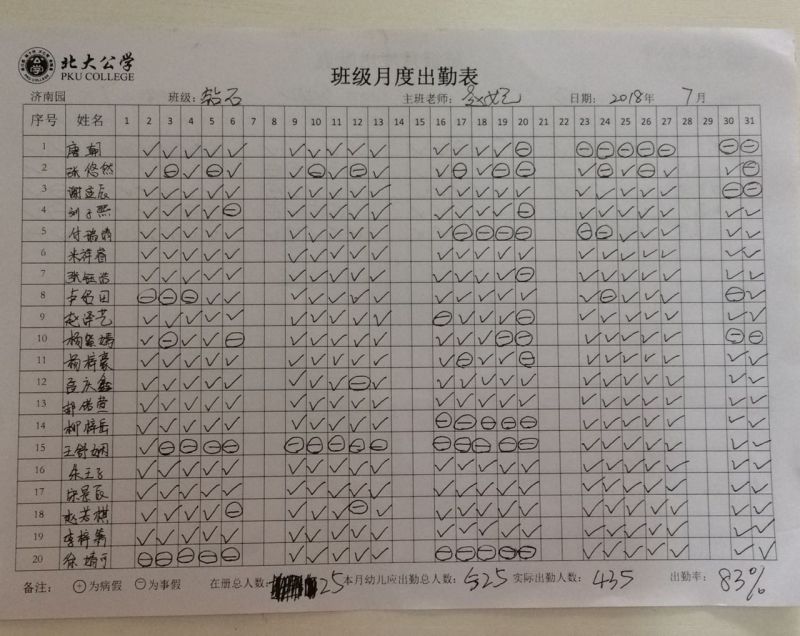 北大公学
PKU COLLEGE
班级月度出勤表
济南园 班级：钻石 主班老师： 日期：2018年 7月
序号 姓名 1 2 3 4 5 6 7 8 9 10 11 12 13 14 15 16 17 18 19 20 21 22 23 24 25 26 27 28 29 30 31
1 唐朝 ✓ ✓ ✓ ✓ ✓ ✓ ✓ ✓ ✓ ✓ ✓ ✓ ✓ ✓ ⊖ ⊖ ⊖ ⊖ ⊖ ⊖ ⊖ ⊖
2 张悠然 ✓ ⊖ ✓ ⊖ ✓ ✓ ⊖ ✓ ⊖ ✓ ✓ ⊖ ✓ ⊖ ⊖ ✓ ⊖ ✓ ⊖ ✓ ✓ ⊖
3 辰 ✓ ✓ ✓ ✓ ✓ ✓ ✓ ✓ ✓ ✓ ✓ ✓ ✓ ✓ ✓ ✓ ✓ ✓ ✓ ✓ ⊖ ⊖
4 刘子熙 ✓ ✓ ✓ ✓ ⊖ ✓ ✓ ✓ ✓ ✓ ✓ ✓ ✓ ✓ ⊖ ✓ ✓ ✓ ✓ ✓ ✓ ✓
5 付瑞 ✓ ✓ ✓ ✓ ✓ ✓ ✓ ✓ ✓ ✓ ✓ ⊖ ⊖ ⊖ ⊖ ⊖ ⊖ ✓ ✓ ✓ ✓ ✓
6 ✓ ✓ ✓ ✓ ✓ ✓ ✓ ✓ ✓ ✓ ✓ ✓ ✓ ✓ ✓ ✓ ✓ ✓ ✓ ✓ ✓ ✓
7 张钰浩 ✓ ✓ ✓ ✓ ✓ ✓ ✓ ✓ ✓ ✓ ✓ ✓ ✓ ✓ ⊖ ✓ ✓ ✓ ✓ ✓ ✓ ✓
8 ⊖ ⊖ ⊖ ✓ ✓ ✓ ✓ ✓ ✓ ✓ ✓ ✓ ✓ ✓ ✓ ✓ ⊖ ✓ ✓ ✓ ⊖ ✓
9 赵泽艺 ✓ ✓ ✓ ✓ ✓ ✓ ✓ ✓ ✓ ✓ ⊖ ✓ ✓ ✓ ⊖ ✓ ✓ ✓ ✓ ✓ ✓ ✓
10 杨 ✓ ⊖ ✓ ✓ ⊖ ✓ ✓ ✓ ✓ ✓ ✓ ✓ ✓ ⊖ ⊖ ✓ ✓ ✓ ✓ ✓ ⊖ ⊖
11 杨梓豪 ✓ ✓ ✓ ✓ ✓ ✓ ✓ ✓ ✓ ✓ ✓ ⊖ ✓ ✓ ⊖ ✓ ✓ ✓ ✓ ✓ ✓ ✓
12 庆鑫 ✓ ✓ ✓ ✓ ✓ ✓ ✓ ✓ ⊖ ✓ ✓ ✓ ✓ ✓ ✓ ✓ ✓ ✓ ✓ ✓ ✓ ✓
13 ✓ ✓ ✓ ✓ ✓ ✓ ✓ ✓ ✓ ✓ ✓ ✓ ✓ ✓ ✓ ✓ ✓ ✓ ✓ ✓ ✓ ✓
14 柳梓岳 ✓ ✓ ✓ ✓ ✓ ✓ ✓ ✓ ✓ ✓ ⊖ ⊖ ⊖ ⊖ ⊖ ✓ ✓ ✓ ✓ ✓ ✓ ✓
15 王舒娴 ✓ ⊖ ⊖ ⊖ ⊖ ⊖ ⊖ ⊖ ⊖ ⊖ ⊖ ⊖ ⊖ ⊖ ⊖ ✓ ✓ ✓ ✓ ✓ ✓ ✓
16 ✓ ✓ ✓ ✓ ✓ ✓ ✓ ✓ ✓ ✓ ✓ ✓ ✓ ✓ ✓ ✓ ✓ ✓ ✓ ✓ ✓ ✓
17 辰 ✓ ✓ ✓ ✓ ✓ ✓ ✓ ✓ ✓ ✓ ✓ ✓ ✓ ✓ ✓ ✓ ✓ ✓ ✓ ✓ ✓ ✓
18 赵若棋 ✓ ✓ ✓ ✓ ⊖ ✓ ✓ ✓ ⊖ ✓ ✓ ✓ ✓ ✓ ✓ ✓ ✓ ✓ ✓ ✓ ✓ ✓
19 李梓 ✓ ✓ ✓ ✓ ✓ ✓ ✓ ✓ ✓ ✓ ✓ ✓ ✓ ✓ ✓ ✓ ✓ ✓ ✓ ✓ ✓ ✓
20 徐靖 ⊖ ⊖ ⊖ ⊖ ⊖ ✓ ✓ ✓ ✓ ✓ ⊖ ⊖ ⊖ ⊖ ⊖ ✓ ✓ ✓ ✓ ✓ ✓ ✓
备注： ⊕为病假 ⊖为事假 在册总人数： 25 本月幼儿应出勤总人数： 525 实际出勤人数： 435 出勤率： 83%